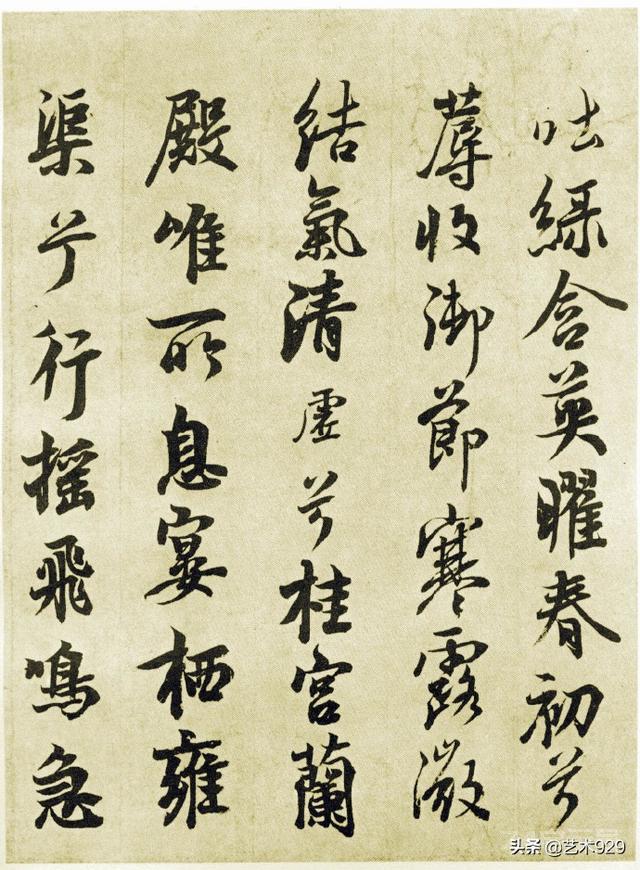 吐緑含英曜春初兮
蓐收御節寒露微
結氣清虛兮桂宮蘭
殿唯所息宴栖雍
渠兮行摇飛鳴急
头条 @艺术929